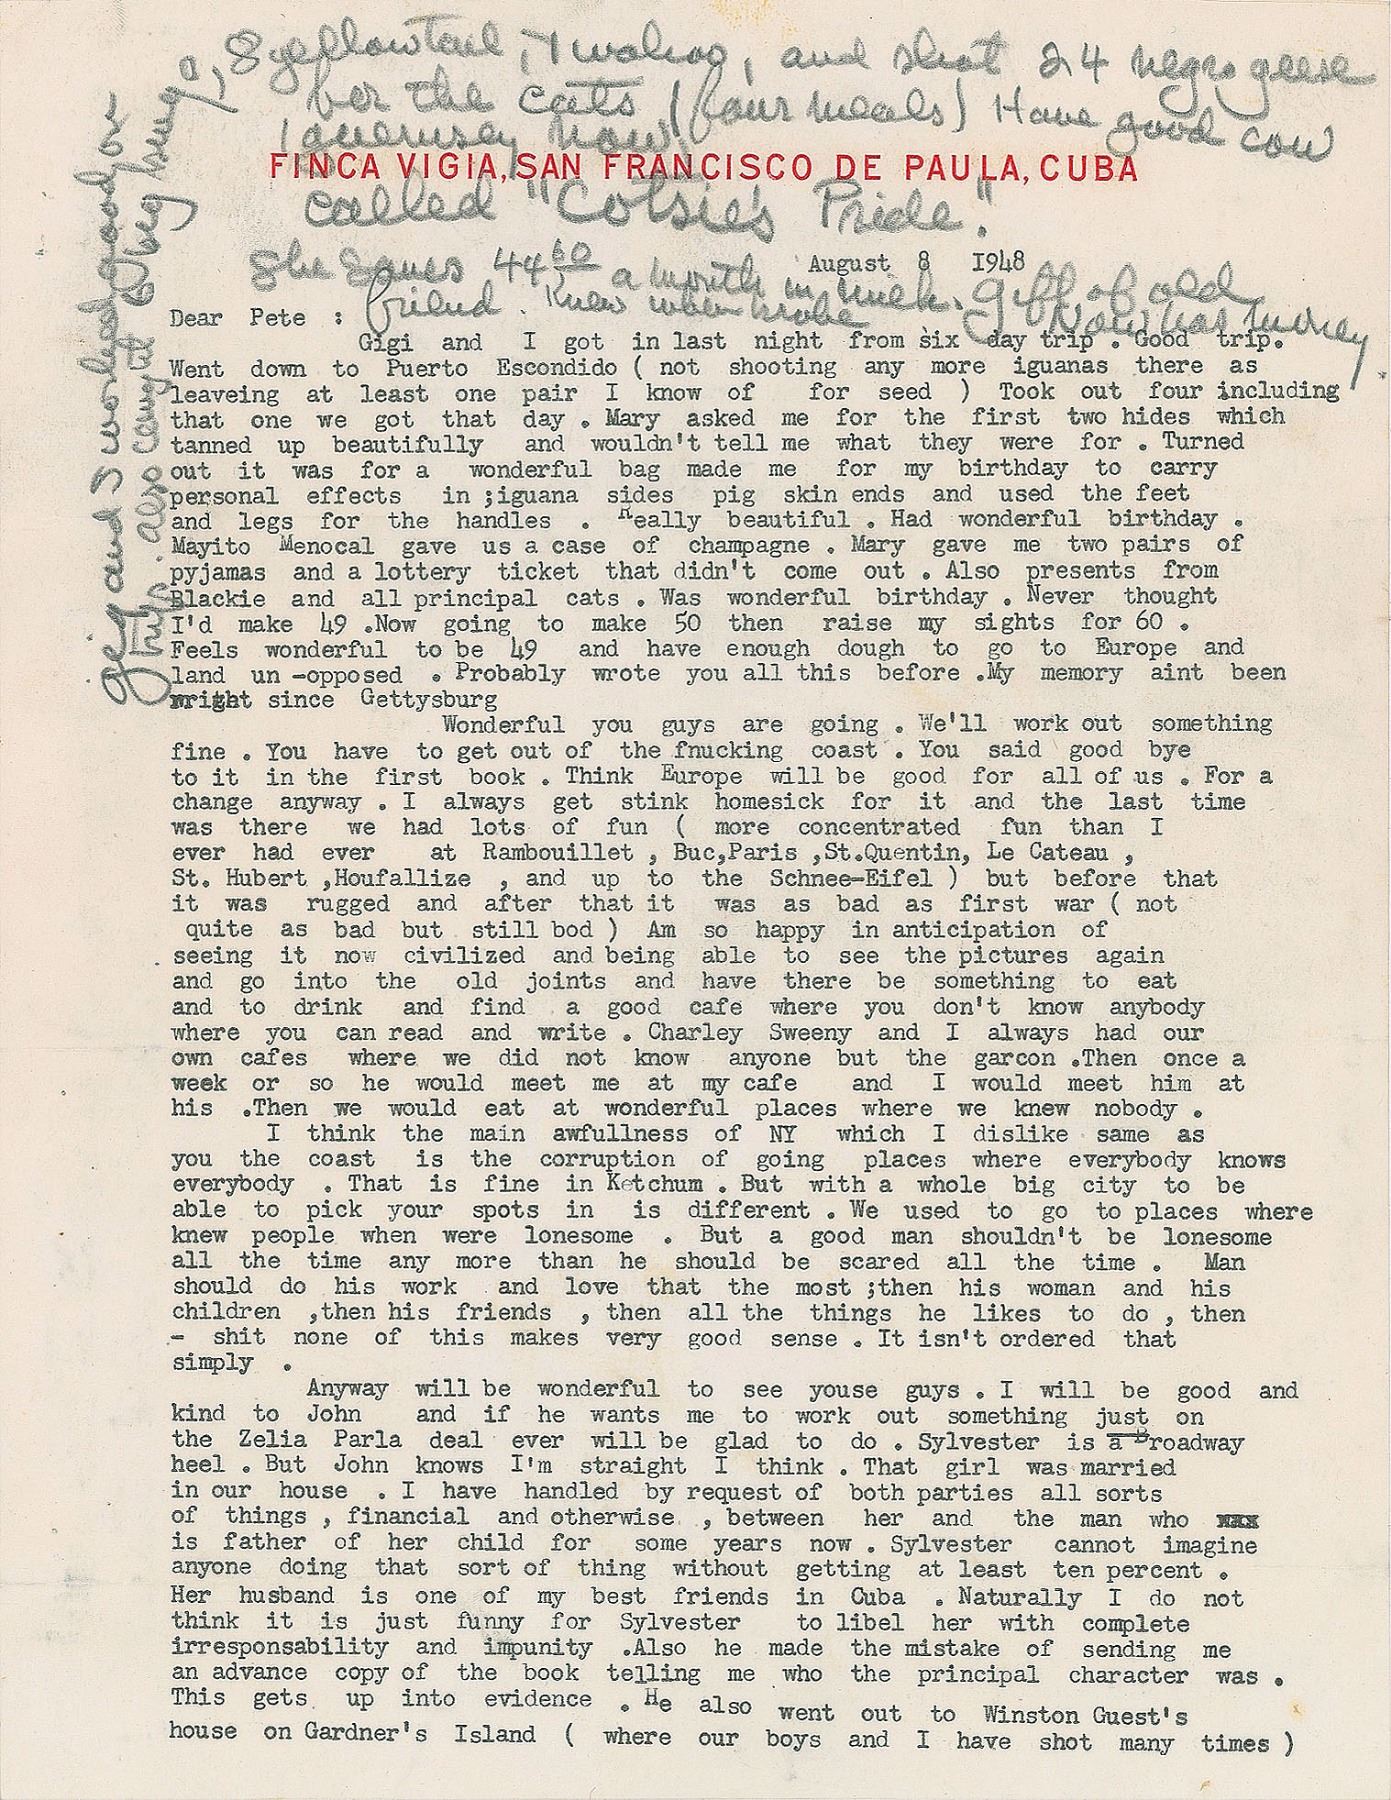 gig and I worked good on
trip. Also caught 6 big
8 yellowtail, wahoo, and shot 24 negro geese
for the cats (four meals) Have good cow
guernsey now
FINCA VIGIA, SAN FRANCISCO DE PAULA, CUBA
called "Pride".
She saves 44 60 a month in milk. Gift of old
friend. Knew when broke Now has money
August 8 1948
Dear Pete :
Gigi and I got in last night from six day trip . Good trip.
Went down to Puerto Escondido ( not shooting any more iguanas there as
leaveing at least one pair I know of for seed ) Took out four including
that one we got that day . Mary asked me for the first two hides which
tanned up beautifully and wouldn't tell me what they were for . Turned
out it was for a wonderful bag made me for my birthday to carry
personal effects in ;iguana sides pig skin ends and used the feet
and legs for the handles . Really beautiful . Had wonderful birthday .
Mayito Menocal gave us a case of champagne . Mary gave me two pairs of
pyjamas and a lottery ticket that didn't come out . Also presents from
Blackie and all principal cats . Was wonderful birthday . Never thought
I'd make 49 .Now going to make 50 then raise my sights for 60 .
Feels wonderful to be 49 and have enough dough to go to Europe and
land un -opposed . Probably wrote you all this before .My memory aint been
wright since Gettysburg
Wonderful you guys are going . We'll work out something
fine . You have to get out of the fnucking coast . You said good bye
to it in the first book . Think Europe will be good for all of us . For a
change anyway . I always get stink homesick for it and the last time
was there we had lots of fun ( more concentrated fun than I
ever had ever at Rambouillet , Buc,Paris ,St.Quentin, Le Cateau ,
St. Hubert ,Houfallize , and up to the Schnee-Eifel ) but before that
it was rugged and after that it was as bad as first war ( not
quite as bad but still bod ) Am so happy in anticipation of
seeing it now civilized and being able to see the pictures again
and go into the old joints and have there be something to eat
and to drink and find a good cafe where you don't know anybody
where you can read and write . Charley Sweeny and I always had our
own cafes where we did not know anyone but the garcon .Then once a
week or so he would meet me at my cafe and I would meet him at
his .Then we would eat at wonderful places where we knew nobody .
I think the main awfullness of NY which I dislike same as
you the coast is the corruption of going places where everybody knows
everybody . That is fine in Ketchum . But with a whole big city to be
able to pick your spots in is different . We used to go to places where
knew people when were lonesome . But a good man shouldn't be lonesome
all the time any more than he should be scared all the time . Man
should do his work and love that the most ;then his woman and his
children ,then his friends , then all the things he likes to do , then
- shit none of this makes very good sense . It isn't ordered that
simply .
Anyway will be wonderful to see youse guys . I will be good and
kind to John and if he wants me to work out something just on
the Zelia Parla deal ever will be glad to do . Sylvester is a Broadway
heel . But John knows I'm straight I think . That girl was married
in our house . I have handled by request of both parties all sorts
of things , financial and otherwise , between her and the man who xxx
is father of her child for some years now . Sylvester cannot imagine
anyone doing that sort of thing without getting at least ten percent .
Her husband is one of my best friends in Cuba . Naturally I do not
think it is just funny for Sylvester to libel her with complete
irresponsability and impunity .Also he made the mistake of sending me
an advance copy of the book telling me who the principal character was .
This gets up into evidence . He also went out to Winston Guest's
house on Gardner's Island ( where our boys and I have shot many times )